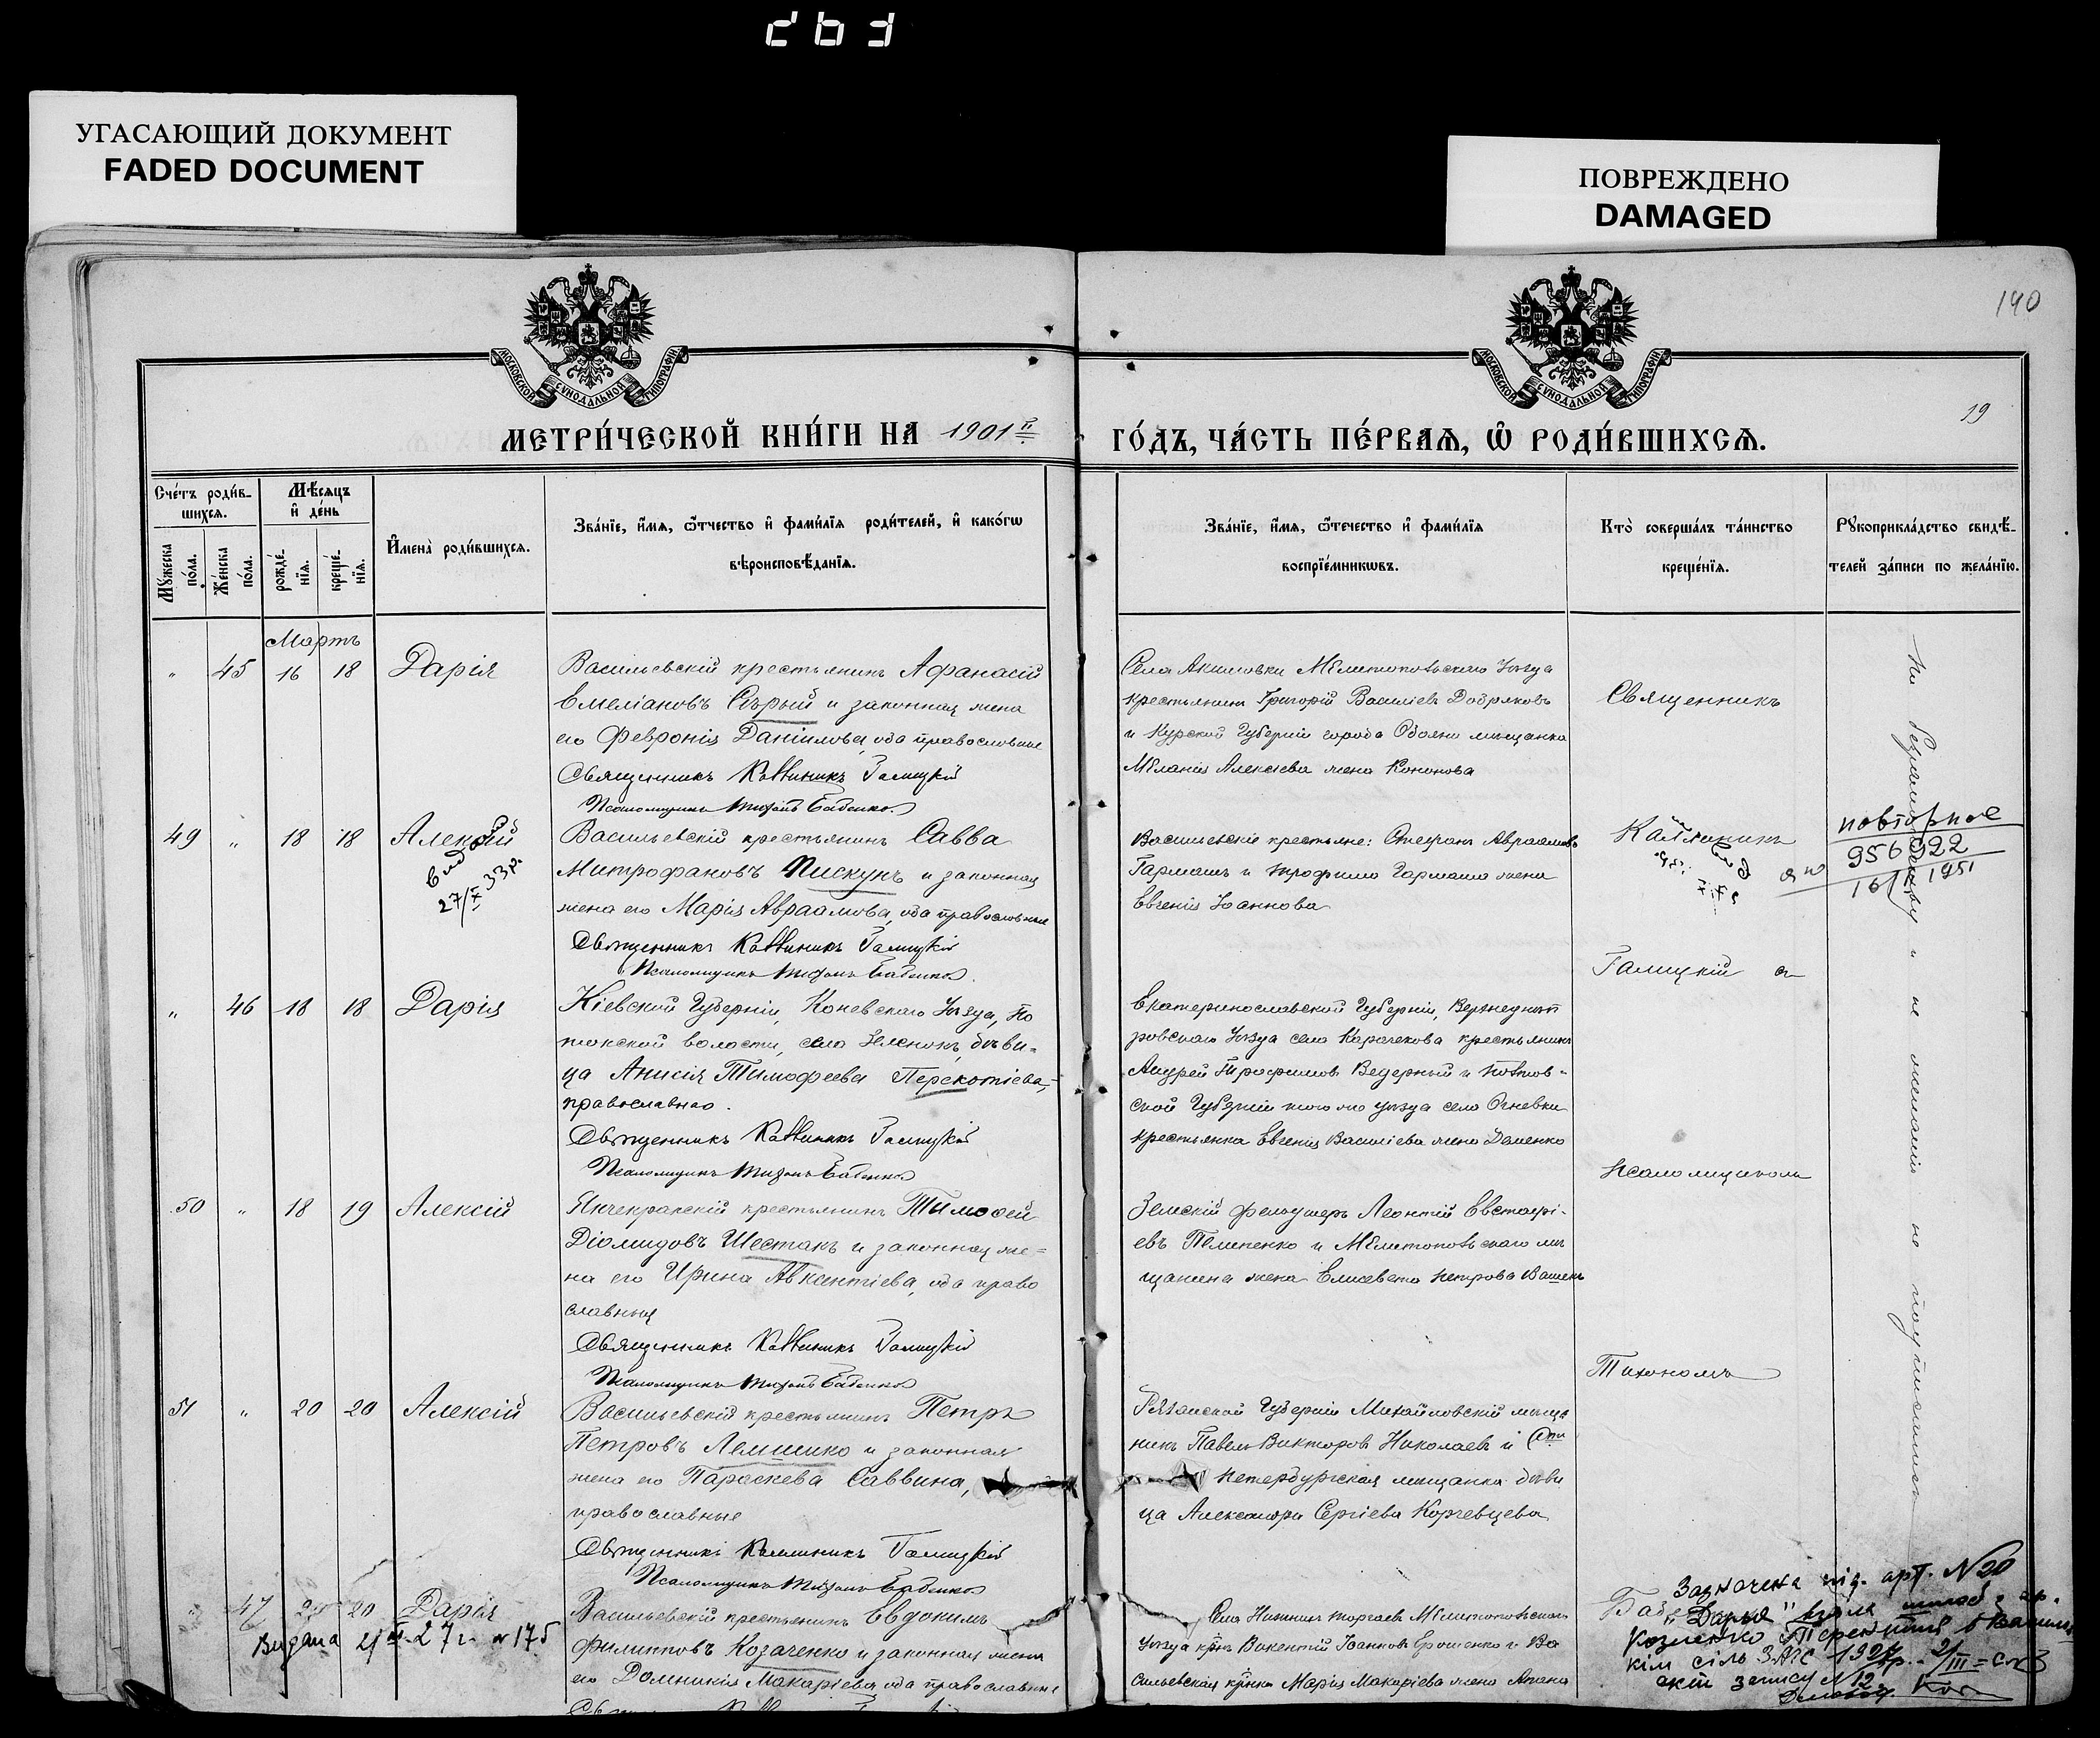 УГАСАЮЩИЙ ДОКУМЕНТ
FADED DOCUMENT
ПОВРЕЖДЕНО
DAMAGED
140
МОСКОВСКОЙ СУНОДАЛЬНОЙ ТИПОГРАФІИ
МОСКОВСКОЙ СУНОДАЛЬНОЙ ТИПОГРАФІИ
19
МЕТРИ́ЧЕСКОЙ КНИ́ГИ НА 1901й
ГО́ДЪ, ЧА́СТЬ ПЕ́РВАЯ, Ѿ РОДИ́ВШИХСЯ.
Сче́тъ роди́в-
шихся.
Мꙋ́жеска по́ла.
Же́нска по́ла.
Мѣ́сяцъ
и҆ де́нь
рожде́-нїя.
креще́-нїя.
И҆мена̀ роди́вшихся.
Зва́нїе, и҆́мя, ѻ҆́тчество и҆ фами́лїя роди́телей, и҆ како́гѡ
вѣроисповѣ́данїя.
Зва́нїе, и҆́мя, ѻ҆́течество и҆ фами́лїя
воспрїе́мникѡвъ.
Кто̀ соверша́лъ та́инство
креще́нїя.
Рꙋкоприкла́дство свидѣ́-
телей за́писи по жела́нїю.
Мартъ
" 45 16 18 Дарія
Васильевскій крестьянинъ Афанасій
Емеліановъ Сѣрый и законная жена
его Февронія Даніилова, оба православные
Священникъ Каллиникъ Галицкій
Псаломщикъ Тихонъ Бабенко
Села Акимовки Мелитопольскаго Уѣзда
крестьянинъ Григорій Василіевъ Добряковъ
и Курской Губерніи города Обояни мѣщанка
Меланія Алексіева жена Кононова
Священникъ
49 " 18 18 Алексій
27/X 33 р.
Васильевскій крестьянинъ Савва
Митрофановъ Пискунъ и законная
жена его Марія Авраамова, оба православные
Священникъ Каллиникъ Галицкій
Псаломщикъ Тихонъ Бабенко
Васильевскіе крестьяне: Стефанъ Авраамовъ
Гармашъ и Трофима Гармаша жена
Евгенія Іоаннова
Каллиникъ
повторное
956922
1951
Галицкій съ
" 46 18 18 Дарія
Кіевской Губерніи, Каневскаго Уѣзда, По
токской волости, села Зеленокъ, дѣви-
ца Анисія Тимофеева Перекотіева,
православная.
Священникъ Каллиникъ Галицкій
Псаломщикъ Тихонъ Бабенко
Екатеринославской Губерніи, Верхнеднѣп
ровскаго Уѣзда села Карачекова крестьянинъ
Андрей Трофимовъ Ведерный и Полтав-
ской Губерніи того же уѣзда села Огневки
крестьянка Евгенія Василіева жена Даценко
Псаломщикомъ
50 " 18 19 Алексій
Янчекракскій крестьянинъ Тимофей
Діомидовъ Шестакъ и законная же-
на его Ирина Авксентіева, оба право
славныя
Священникъ Каллиникъ Галицкій
Псаломщикъ Тихонъ Бабенко
Земскій фельдшеръ Леонтій Евстафі-
евъ Пелипенко и Мелитопольскаго мѣ
щанина жена Елисавета Петрова
Тихономъ
51 " 20 20 Алексій
Васильевскій крестьянинъ Петръ
Петровъ Лемишко и законная
жена его Параскева Саввина,
православные
Священникъ Каллиникъ Галицкій
Псаломщикъ Тихонъ Бабенко
Рязанской Губерніи Михайловскій мѣща
нинъ Павелъ Викторовъ Николаевъ и
Петербургская мѣщанка дѣви
ца Александра Сергіева Корчевцева
" 47 20 20 Дарія
Видана 21/III 27 г. №175
Васильевскій крестьянинъ Евдокимъ
Филипповъ Козаченко и законная жена
его Домникія Макаріева, оба православные
Села Нижнихъ Торгаевъ Мелитопольскаго
Уѣзда кр-нъ Викентій Іоанновъ Ерошенко и Ва
сильевская кр-нка Марія Макаріева жена
Зазначена під. арт. №20
"Дарья" взяла шлюб з гр.
Козленко Терентій в Васильв
кім сіль ЗАГС 1927 р. 2/III
акт запису №12.